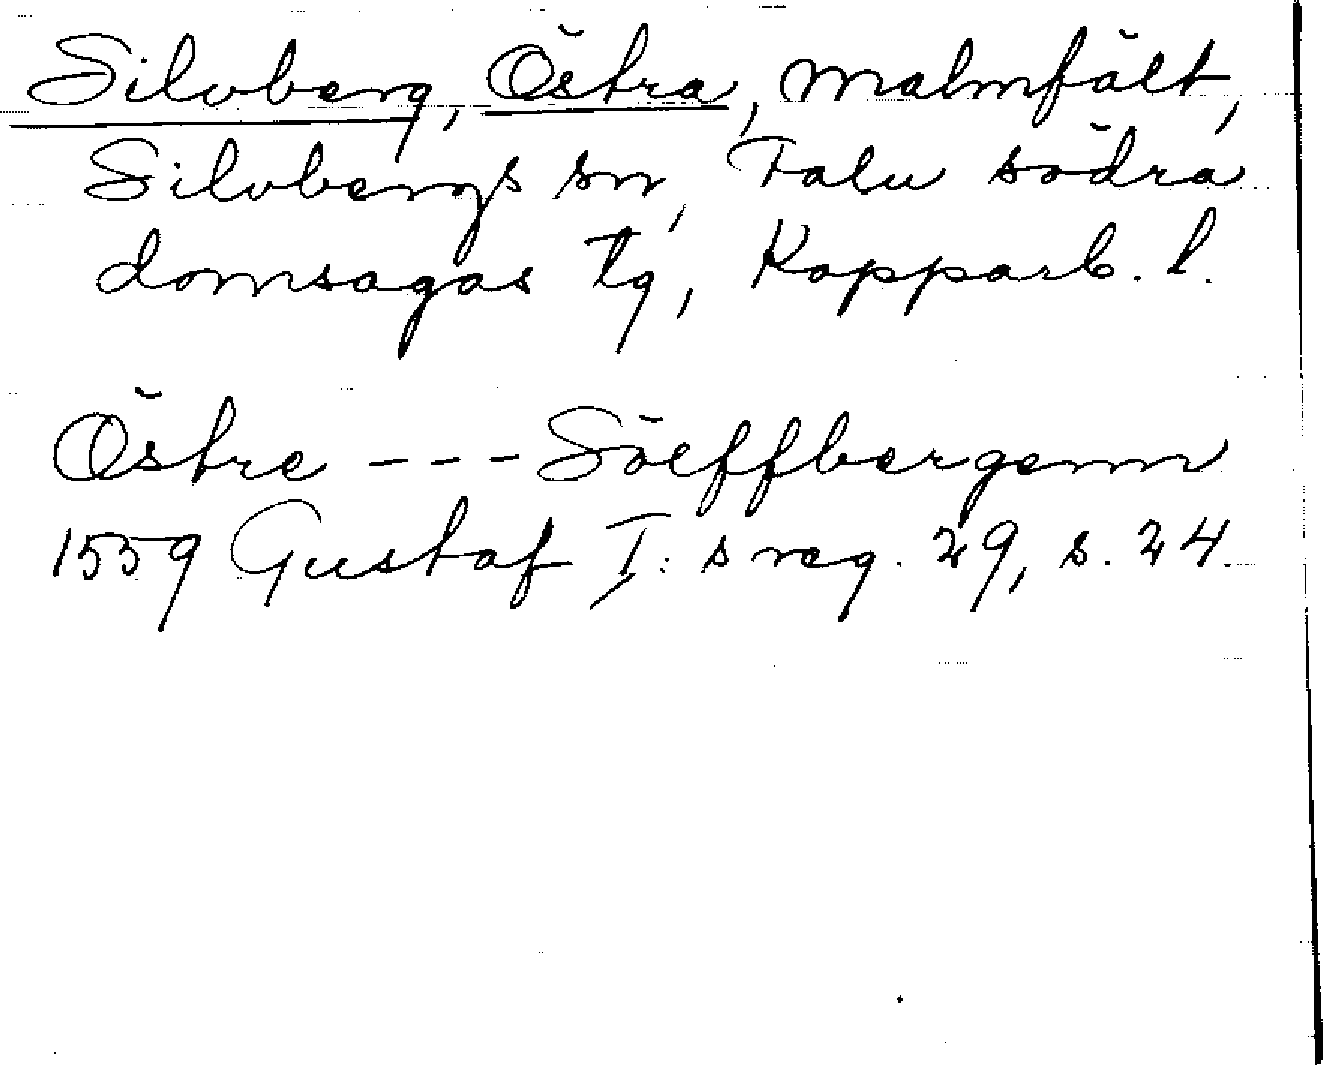 Silvberg, Östra, malmfält,
Silvbergs sn, Falu södra
domsagas tg, Kopparb. l.
Östre --- Söeffbergenn
1559 Gustaf I:s reg. 29, s. 24.